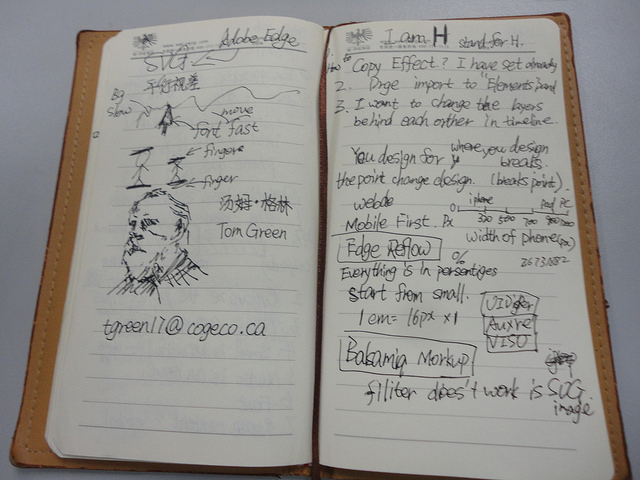 Adobe Edge
SVG
平行视差
Bg
slow
move
font fast
fingers
finger
汤姆·格林
Tom Green
tgreen17@cogeco.ca
I am H stand for H.
1. How to Copy Effect? I have set already
2. Drge import to "Elements pand
3. I want to change the layers
behind each orther in timeline
You design for where you design
breaks.
the point change design. (breaks point).
iphone
Pad PC
Mobile First. Px 0 320 500 700
width of phone(px)
Edge Reflow
%
26731882
Everything is in persentiges
start from small.
1em = 16px × 1
UIDgler
Auxre
VISO
Balsamiq Morkup
filiter does't work is SVG
image